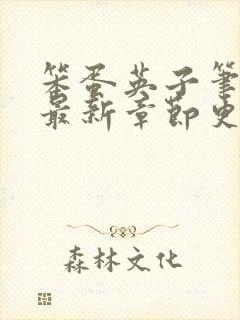 笨蛋英子笔
最新章节更
森林文化